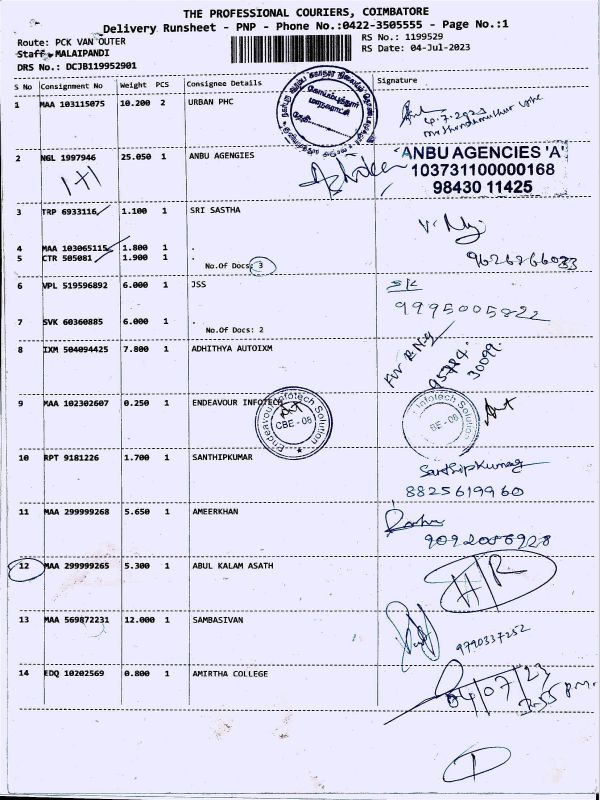 THE PROFESSIONAL COURIERS, COIMBATORE
Delivery Runsheet - PNP - Phone No.:0422-3505555 - Page No.:1
Route: PCK VAN OUTER
RS No.: 1199529
Staff MALAIPANDI
RS Date: 04-Jul-2023
DRS No.: DCJB119952901
S No Consignment No Weight PCS Consignee Details Signature
1 MAA 103115075 10.200 2 URBAN PHC
4.7.2023
2 NGL 1997946 25.050 1 ANBU AGENGIES
1+1
ANBU AGENCIES 'A'
103731100000168
98430 11425
3 TRP 6933116 1.100 1 SRI SASTHA
4 MAA 103065115 1.800 1 .
5 CTR 505081 1.900 1 .
No.Of Docs: 3
6 VPL 519596892 6.000 1 JSS
SK
9995005822
7 SVK 60360885 6.000 1 .
No.Of Docs: 2
8 IXM 504094425 7.800 1 ADHITHYA AUTOIXM
95784
30099
9 MAA 102302607 0.250 1 ENDEAVOUR INFOTECH
Endeavour Infotech Solution
CBE - 06
Infotech Solution
BE - 06
10 RPT 9181226 1.700 1 SANTHIPKUMAR
Santhipkumar
8825619960
11 MAA 299999268 5.650 1 AMEERKHAN
9092086928
12 MAA 299999265 5.300 1 ABUL KALAM ASATH
H/R
13 MAA 569872231 12.000 1 SAMBASIVAN
9790337252
14 EDQ 10202569 0.800 1 AMIRTHA COLLEGE
04/07/23
3.55 P.M.
1